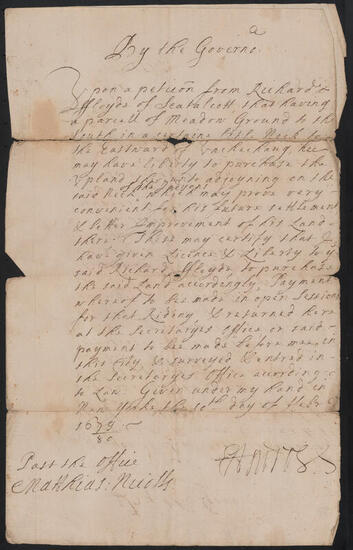 By the Governo.r
Upon a petition from Richard
ffloyde of Seatalcott, that having
a parcell of Meadow Ground to the
South in a certaine Neck to
the Eastward of hee
may have liberty to purchase the
Upland adjoyning on the
of the Indyans
said Neck, may prove very
convenient for his future settlement
& better Improvement of his Land
there; These may certify that I
have given Licence & Liberty to ye
said Richard ffloyde, to purchase
the said Land accordingly, Payment
whereof to be made in open Sessions
for that Riding, & returned here
at the Secretaryes Office or said
payment to be made before mee, in
this City, & surveyed & entred in
the Secretaryes Office according
to Law. Given under my hand in
New Yorke the 10th day of Feb
1679/80
Past the Office
Matthias: Nicolls